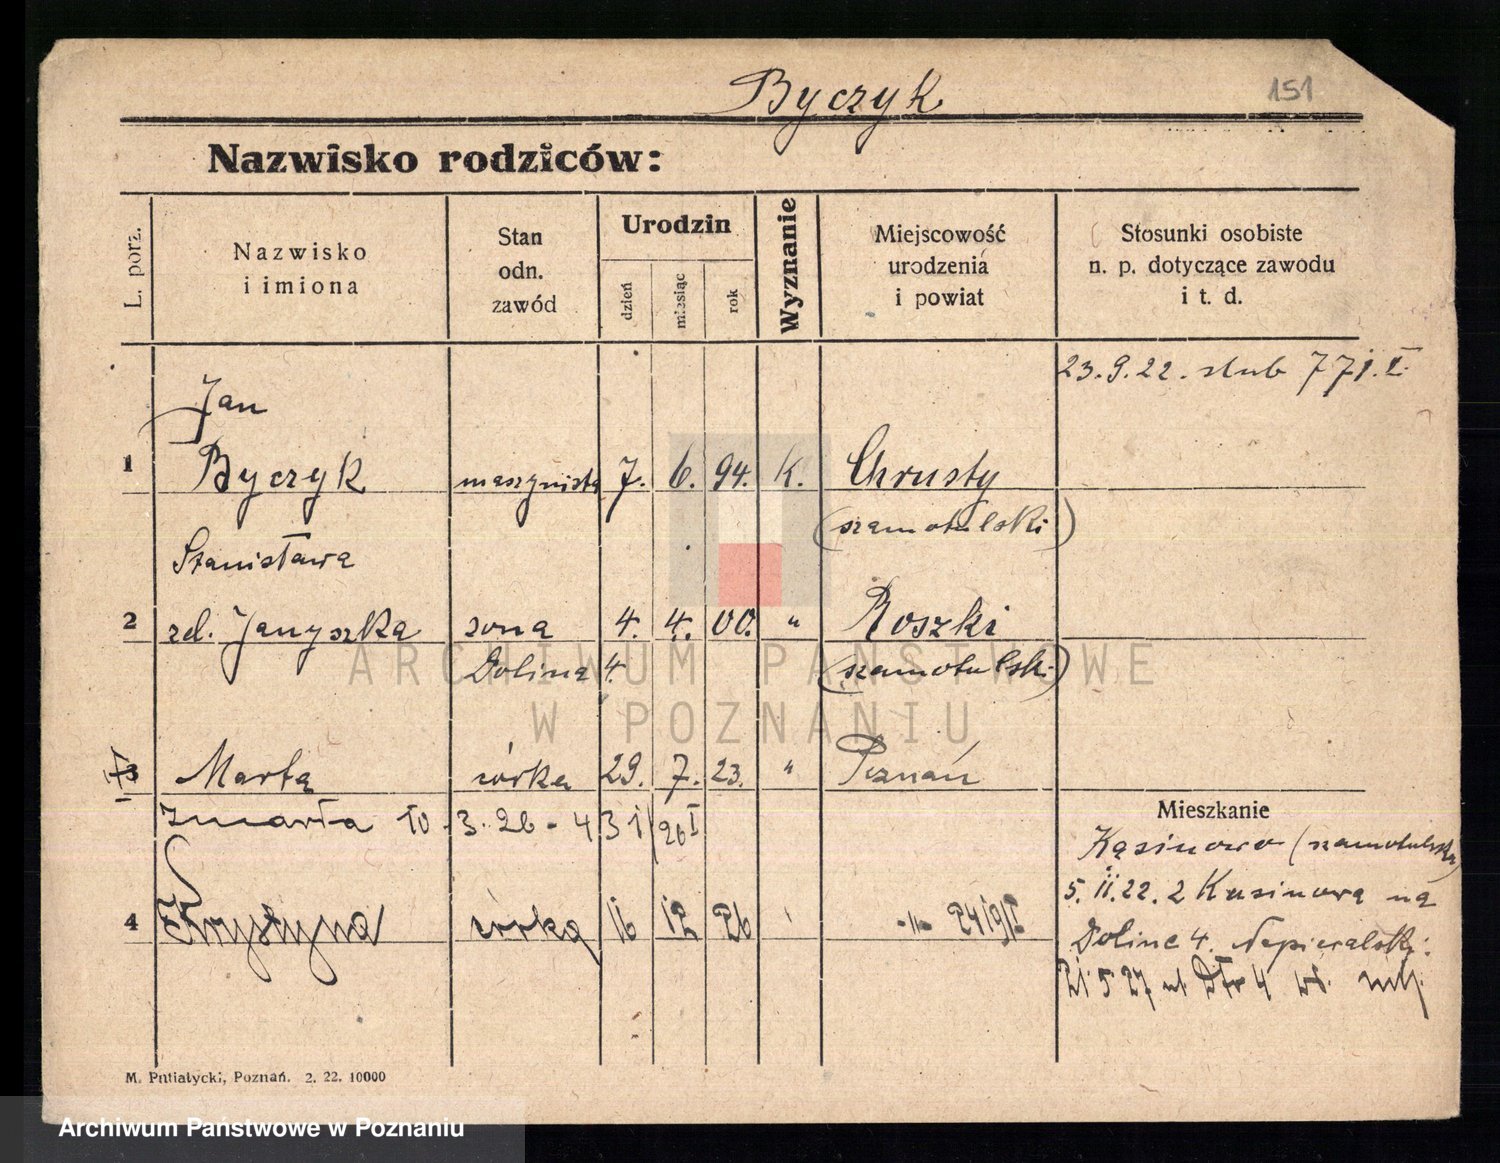 Byczyk
151
Nazwisko rodziców:
L. porz.
Nazwisko
i imiona
Stan
odn.
zawód
Urodzin
dzień
miesiąc
rok
Wyznanie
Miejscowość
urodzenia
i powiat
Stosunki osobiste
n. p. dotyczące zawodu
i t. d.
23. 9. 22. slub 771.I.
Jan
1 Byczyk maszynista 7. 6. 94. K. Chrusty
(szamotulski)
Stanisława
2 zd. Janyszka żona 4. 4. 00. " Roszki
Dolina 4. (szamotulski)
3 Marta córka 29. 7. 23. " Poznań
Zmarła 10. 3. 26 - 431/26 I
4 Krystyna córka 16 12 26 -"-
Mieszkanie
Kąsinowo (szamotulski)
5. II. 22. z Kusinowa na
Dolinę 4. Napieralski.
21. 5. 27 4
M. Putiatycki, Poznań. 2. 22. 10000
ARCHIWUM PAŃSTWOWE
W POZNANIU
Archiwum Państwowe w Poznaniu